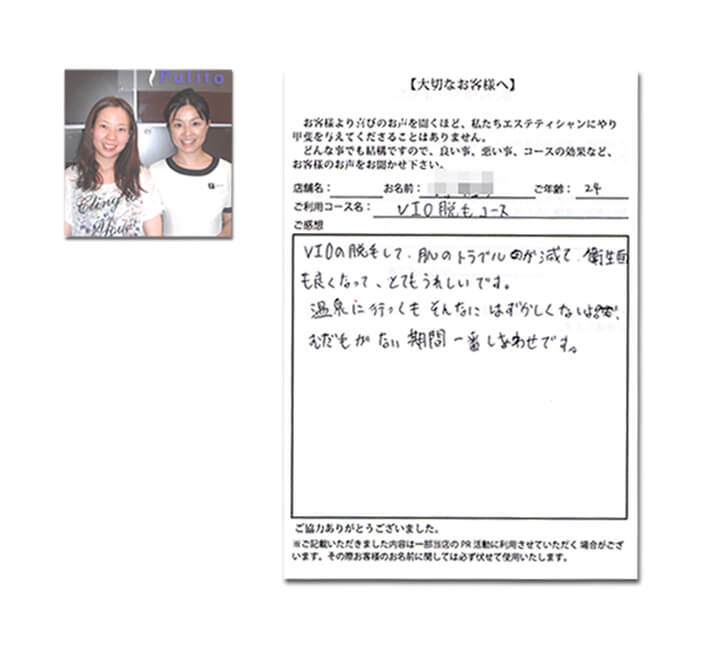 Pulito
Cling to
【大切なお客様へ】
お客様より喜びのお声を聞くほど、私たちエステティシャンにやり
甲斐を与えてくださることはありません。
どんな事でも結構ですので、良い事、悪い事、コースの効果など、
お客様のお声をお聞かせ下さい。
店舗名： お名前： ご年齢： 24
ご利用コース名： VIO脱毛コース
ご感想
VIOの脱毛して、肌のトラブルが減て、衛生面
も良くなって、とてもうれしいです。
温泉に行っても そんなに はずかしくない
むだもがない期間一番しあわせです。
ご協力ありがとうございました。
※ご記載いただきました内容は一部当店のPR活動に利用させていただく場合がござ
います。その際お客様のお名前に関しては必ず伏せて使用いたします。